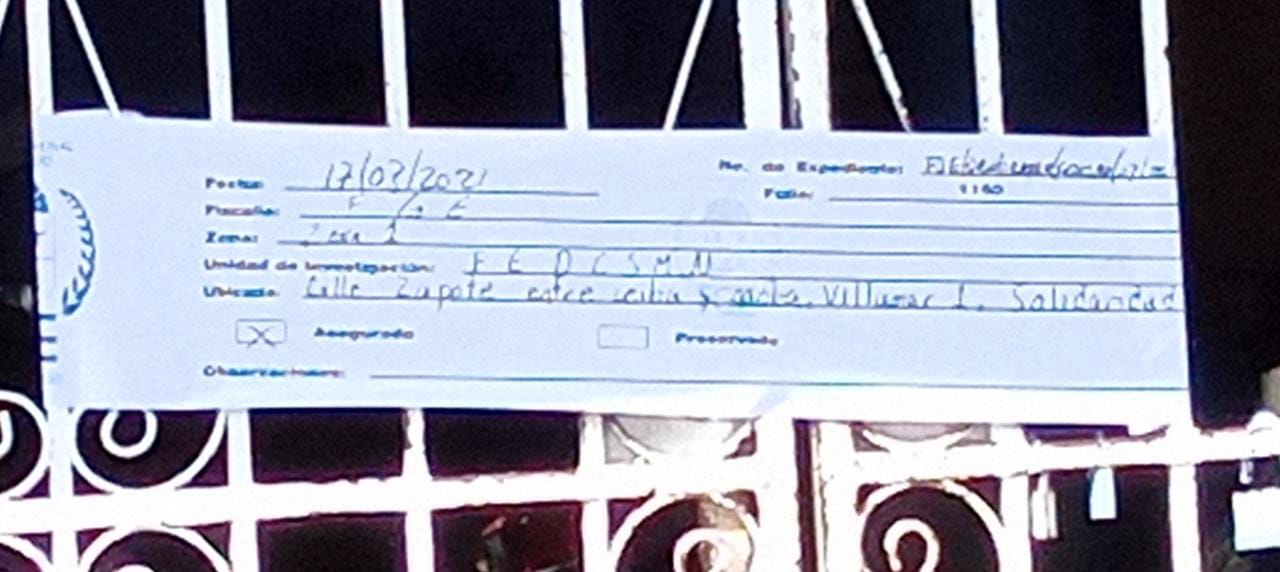 Fecha: 17/03/2021 No. de Expediente:
Folio: 1160
Fiscalia: F
Zona: Zona 1
Unidad de Investigación: F E D C S M N
Ubicado: Calle Zapote entre ceiba y Villamar 1. Solidaridad
X Asegurado Preservado
Observaciones: